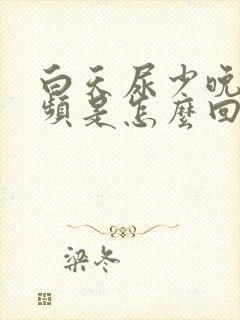 白天尿少晚
頻是怎麼回
梁冬